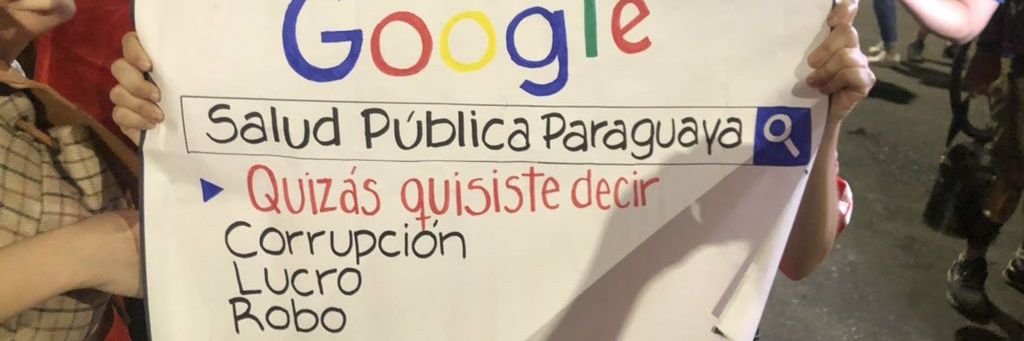 Google
Salud Pública Paraguaya
Quizás quisiste decir
Corrupción
Lucro
Robo